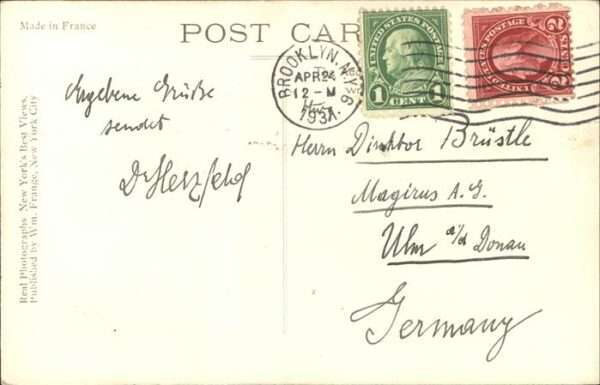 Made in France
POST CAR
BROOKLYN, N.Y. 6
APR 24
12 - M
193
UNITED STATES POSTAGE
1 CENT 1
2 CENTS 2
Ergebene Grüße
sendet
Dr Herzfeld
Herrn Direktor Brüstle
Magirus A.G.
Ulm a/d Donau
Germany
Real Photographs New York's Best Views,
Published by Wm. Frange, New York City